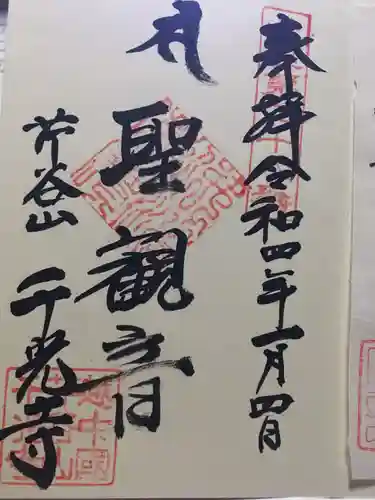 奉拝 令和四年一月四日
聖観音
芹谷山 千光寺